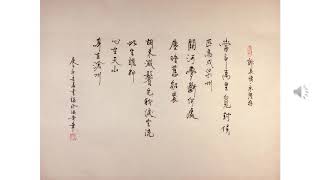 訴衷情
當年萬里覓封侯
匹馬戍梁州
關河夢斷何處
塵暗舊貂裘
胡未滅鬢先秋淚空流
此生誰料
心在天山
身老滄州